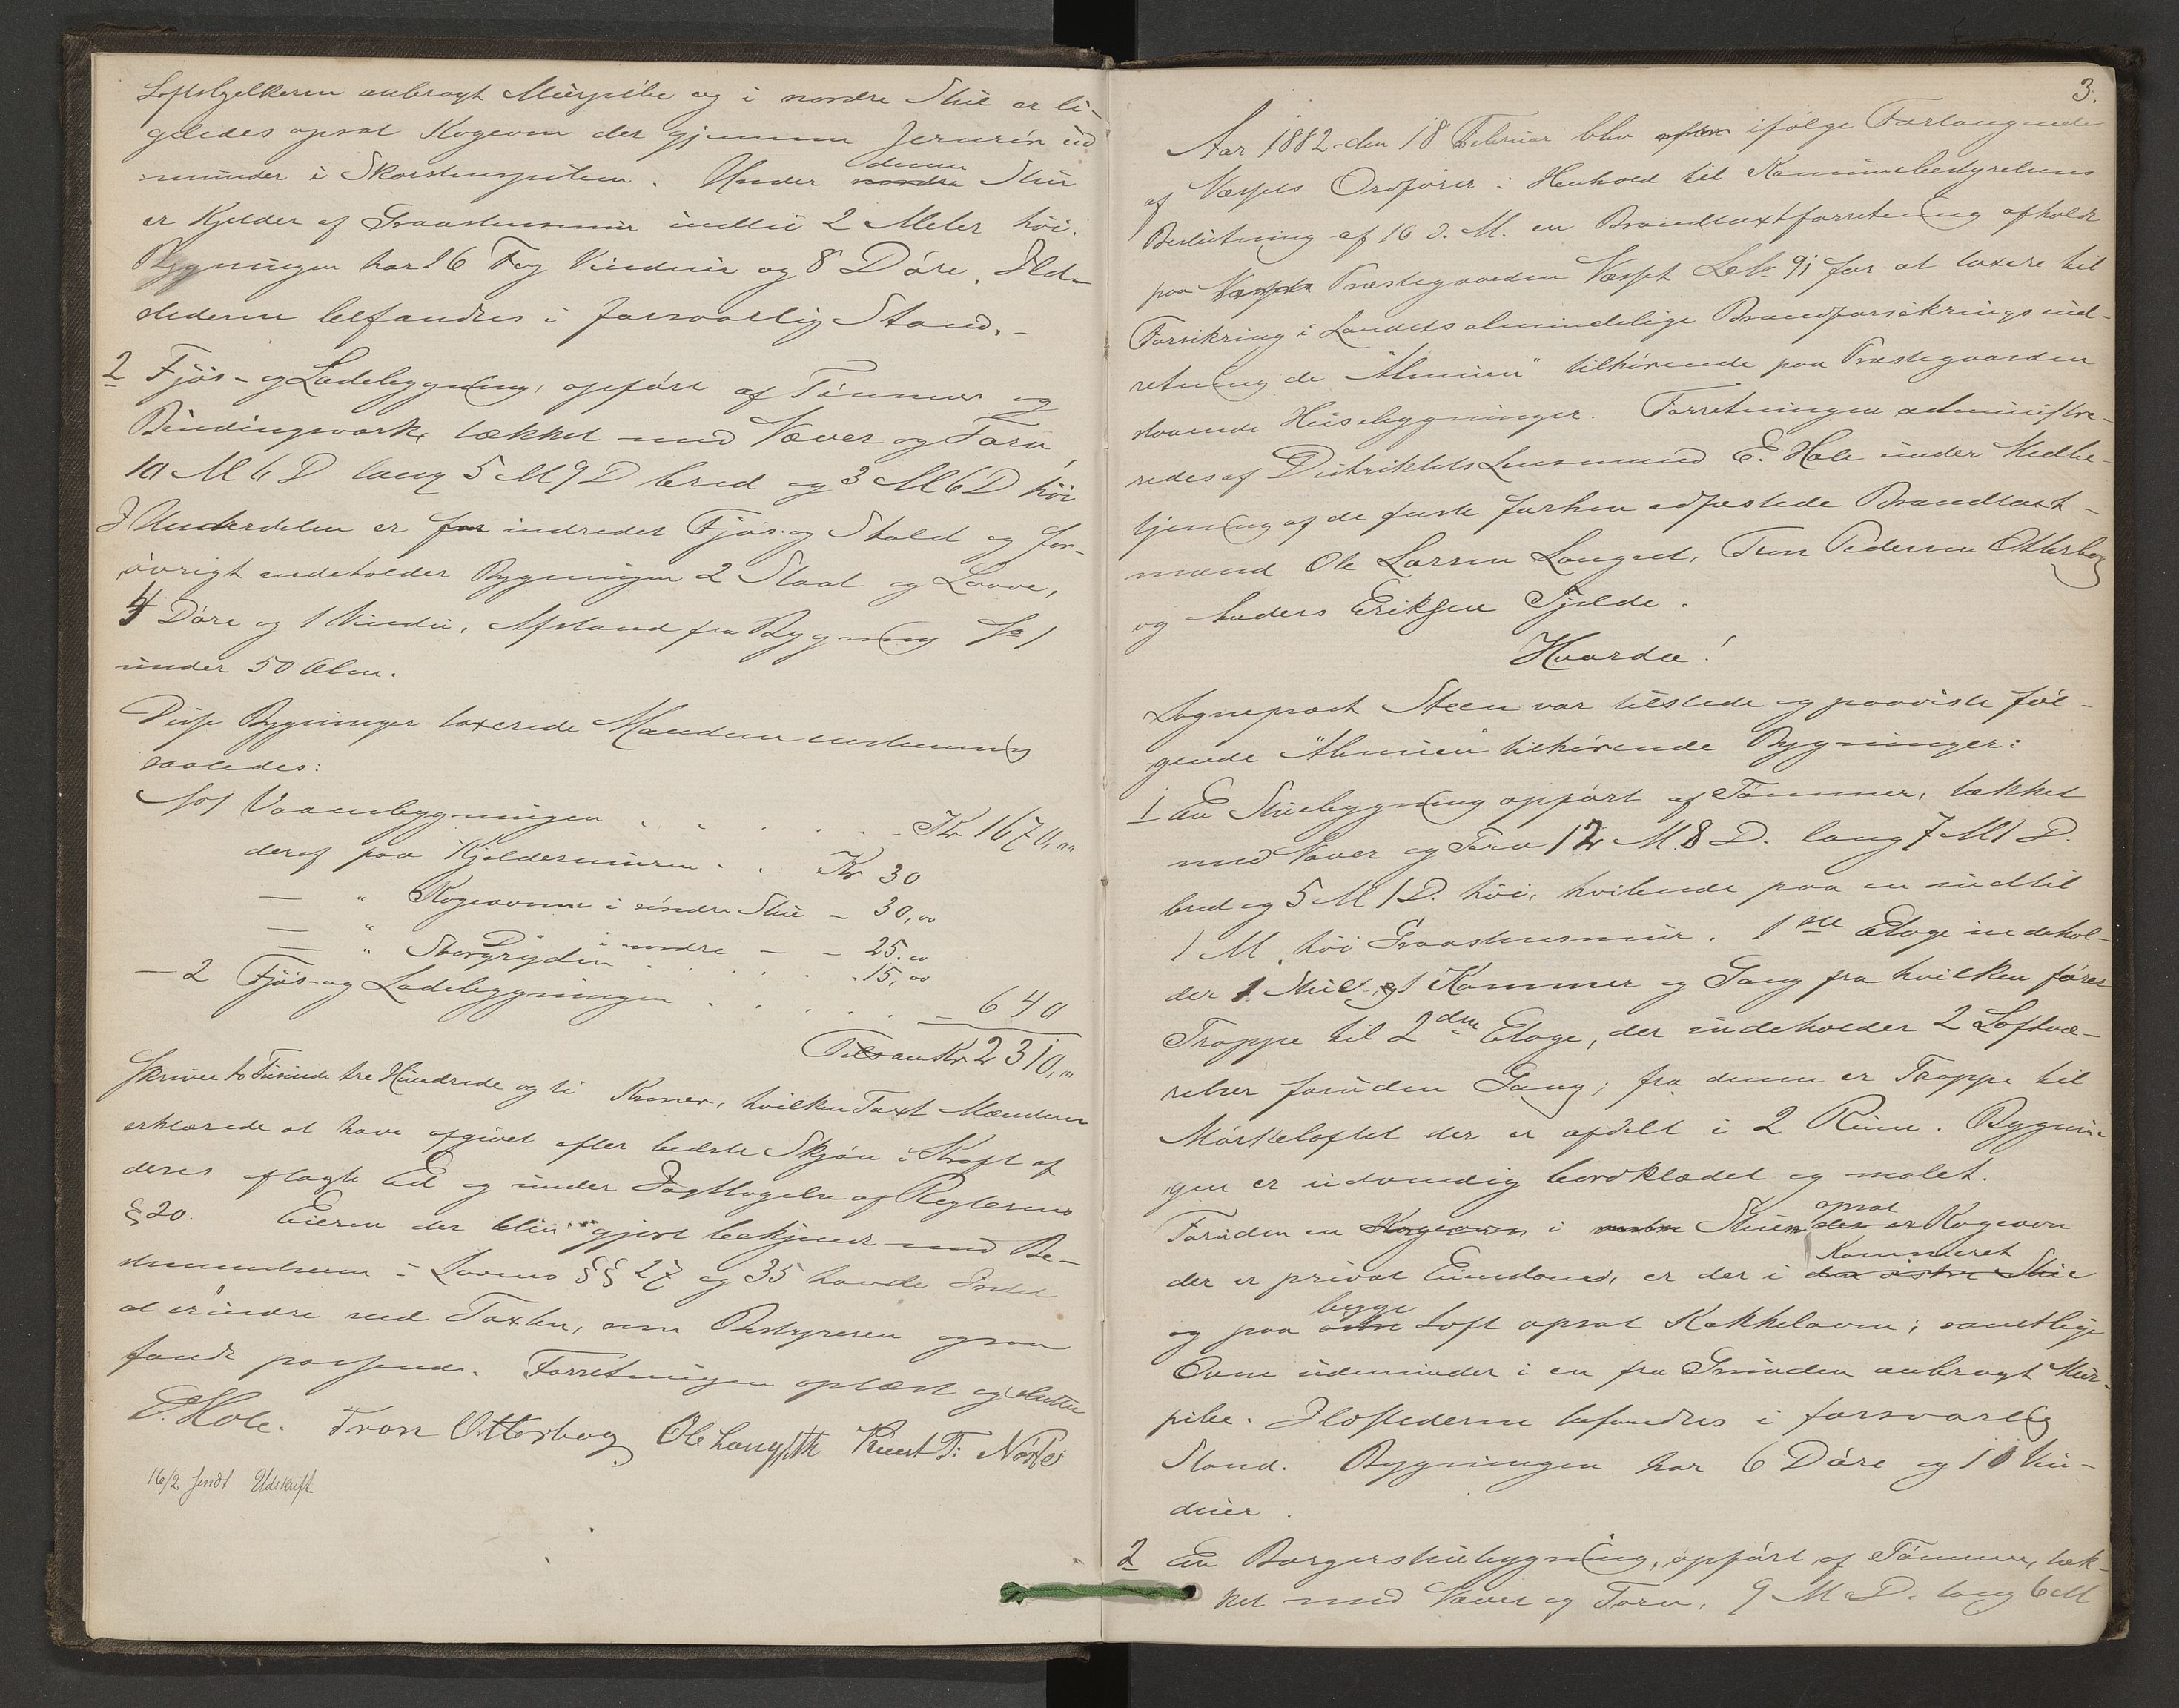 Loftsbjelkerne anbragt Muurpibe og i nordre Stue er li-
geledes opsat Kogeovn der gjennem Jernrör ud
munder i Skorstenspiben. Under denne Stue
er Kjelder af Graastensmuur indtil 2 Meter höi.
Bygningen har 16 Fag Vinduer og 8 Döre. Ild-
stederne befandtes i forsvarlig Stand.-
2 Fjös- og Ladebygning, opfört af Tömmer og
Bindingsværk, tækket med Næver og Torv,
10 M 6 D lang 5 M 9 D bred og 3 M 6 D höi
I Underdelen er for indredet Fjös og Stald og for-
övrigt indeholder Bygningen 2 Staal og Laave,
4 Döre og 1 Vindu. Afstand fra Bygning No 1
under 50 Alen.
Disse Bygninger taxerede Mændene enstemmig
saaledes:
No 1 Vaanebygningen . . . . . Kr 1670,00
deraf paa Kjeldermuren . . Kr 30
— " Kogeovnen i söndre Stue — 30,00
— " D i nordre — — 25.00
— " Skorstenen . . . . 15,00
— 2 Fjös- og Ladebygningen . . . . . — 640
Tilsam Kr 2310,00
skriver to Tusinde tre Hundrede og ti Kroner, hvilken Taxt Mændene
erklærede at have afgivet efter bedste Skjön i Kraft af
deres aflagte Ed og under Iagttagelse af Reglernes
§ 20. Eieren der blev gjort bekjendt med Be-
stemmelserne i Lovens §§ 27 og 35 havde Intet
at erindre ved Taxten, som Bestyreren ogsaa
fandt passende. Forretningen oplæst og sluttet
E. Hole. Tron Otterbog Ole Langseth Knut T:
16/2 sendt Udskrift
3.
Aar 1882 den 18 Februar blev efter ifölge Forlangende
af Næssets Ordförer i Henhold til Kommunebestyrelsens
Beslutning af 16 d. M. en Brandtaxtforretning afholdt
paa Næssets Præstegaarden Næsset Lb 91 for at taxere til
Forsikring i Landets almindelige Brandforsikringsind-
retning de "Almuen" tilhörende paa Præstegaarden
staaende Husebygninger. Forretningen administre-
redes af Distriktets Lensmand E. Hole under Medbe-
tjening af de faste forhen edfæstede Brandtaxt-
mænd Ole Larsen Langset, Tron Pedersen Otterbog
og Anders Eriksen Tjelde.
Hvorda!
Sognepræst Steen var tilstede og paaviste föl-
gende "Almuen" tilhörende Bygninger:
1 En Stuebygning opfört af Tömmer, tækket
med Næver og Torv 12 M. 8 D. lang 7 M 1 D.
bred og 5 M 1 D. höi, hvilende paa en indtil
1 M. höi Graastensmuur. 1ste Etage indehol-
der 1 Stue, 1 Kammer og Gang fra hvilken förer
Trappe til 2den Etage, der indeholder 2 Loftvæ-
relser foruden Gang; fra denne er Trappe til
Mörkeloftet der er afdelt i 2 Rum. Bygnin-
gen er udvendig bordklædet og malet.
Foruden en Kogeovn i Stuen opsat der er Kogeovn
der er privat Eiendom, er der i Kammeret den östre Stue
og paa begge östre Loft opsat Kakkelovn; samtlige
Ovne udmunder i en fra Grunden anbragt Muur-
pibe. Ildstederne befandtes i forsvarlig
Stand. Bygningen har 6 Döre og 10 Vin-
duer.
2 En Borgerstuebygning, opfört af Tömmer, tæk-
ket med Næver og Torv, 9 M D. lang 6 M